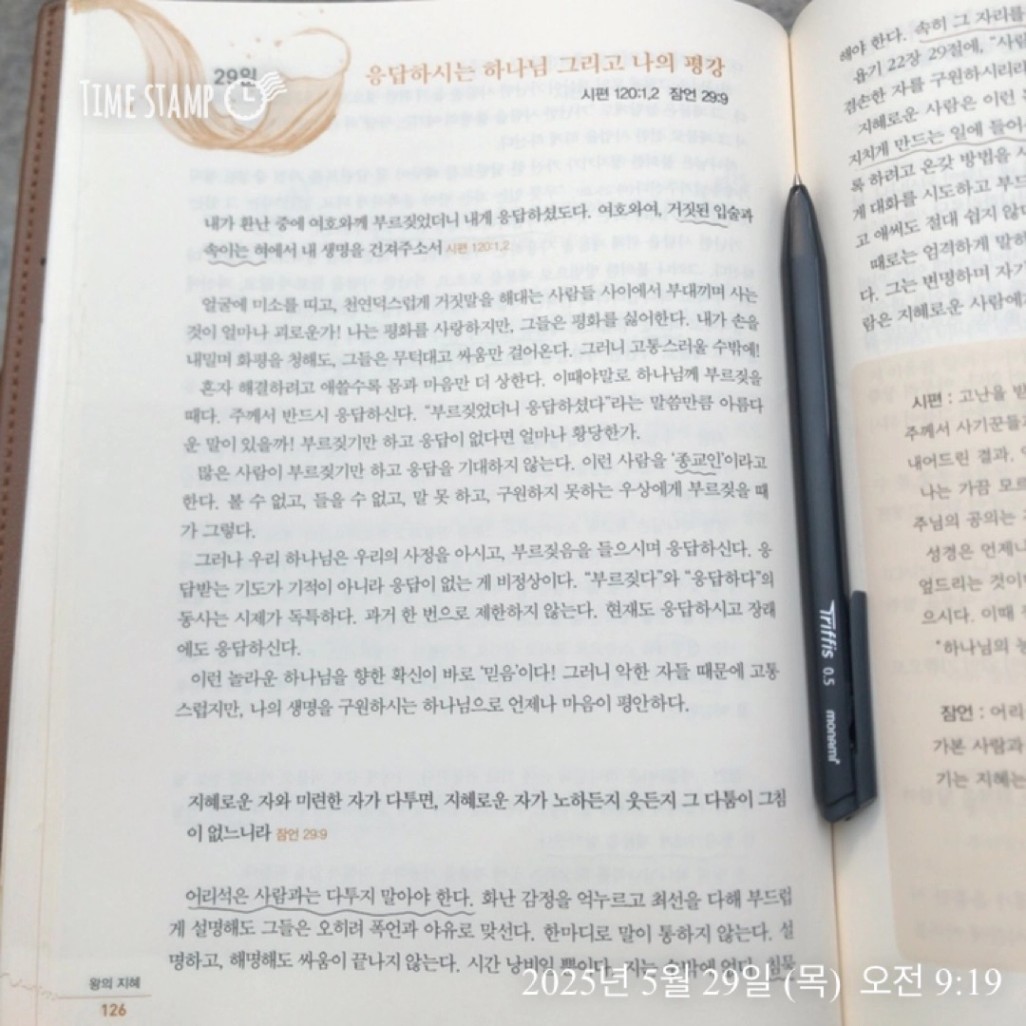 29일
TIME STAMP
응답하시는 하나님 그리고 나의 평강
시편 120:1,2 잠언 29:9
내가 환난 중에 여호와께 부르짖었더니 내게 응답하셨도다. 여호와여, 거짓된 입술과
속이는 혀에서 내 생명을 건져주소서 시편 120:1,2
얼굴에 미소를 띠고, 천연덕스럽게 거짓말을 해대는 사람들 사이에서 부대끼며 사는
것이 얼마나 괴로운가! 나는 평화를 사랑하지만, 그들은 평화를 싫어한다. 내가 손을
내밀며 화평을 청해도, 그들은 무턱대고 싸움만 걸어온다. 그러니 고통스러울 수밖에!
혼자 해결하려고 애쓸수록 몸과 마음만 더 상한다. 이때야말로 하나님께 부르짖을
때다. 주께서 반드시 응답하신다. “부르짖었더니 응답하셨다”라는 말씀만큼 아름다
운 말이 있을까! 부르짖기만 하고 응답이 없다면 얼마나 황당한가.
많은 사람이 부르짖기만 하고 응답을 기대하지 않는다. 이런 사람을 ‘종교인’이라고
한다. 볼 수 없고, 들을 수 없고, 말 못 하고, 구원하지 못하는 우상에게 부르짖을 때
가 그렇다.
그러나 우리 하나님은 우리의 사정을 아시고, 부르짖음을 들으시며 응답하신다. 응
답받는 기도가 기적이 아니라 응답이 없는 게 비정상이다. “부르짖다”와 “응답하다”의
동사는 시제가 독특하다. 과거 한 번으로 제한하지 않는다. 현재도 응답하시고 장래
에도 응답하신다.
이런 놀라운 하나님을 향한 확신이 바로 ‘믿음’이다! 그러니 악한 자들 때문에 고통
스럽지만, 나의 생명을 구원하시는 하나님으로 언제나 마음이 평안하다.
지혜로운 자와 미련한 자가 다투면, 지혜로운 자가 노하든지 웃든지 그 다툼이 그침
이 없느니라 잠언 29:9
어리석은 사람과는 다투지 말아야 한다. 화난 감정을 억누르고 최선을 다해 부드럽
게 설명해도 그들은 오히려 폭언과 야유로 맞선다. 한마디로 말이 통하지 않는다. 설
명하고, 해명해도 싸움이 끝나지 않는다. 시간 낭비일 뿐이다. 지는 수밖에 없다. 침묵
왕의 지혜
126
Triffis 0.5 monami
해야 한다. 속히 그 자리를
욥기 22장 29절에, “사람
겸손한 자를 구원하시리라
지혜로운 사람은 이런
지치게 만드는 일에 들어
록 하려고 온갖 방법을
게 대화를 시도하고 부드
고 애써도 절대 쉽지 않
때로는 엄격하게 말하
다. 그는 변명하며 자기
람은 지혜로운 사람에
시편 : 고난을 받
주께서 사기꾼들
내어드린 결과,
나는 가끔 모르
주님의 공의는
성경은 언제나
엎드리는 것이
으시다. 이때
“하나님의
잠언 : 어리
가본 사람과
기는 지혜는
2025년 5월 29일 (목) 오전 9:19